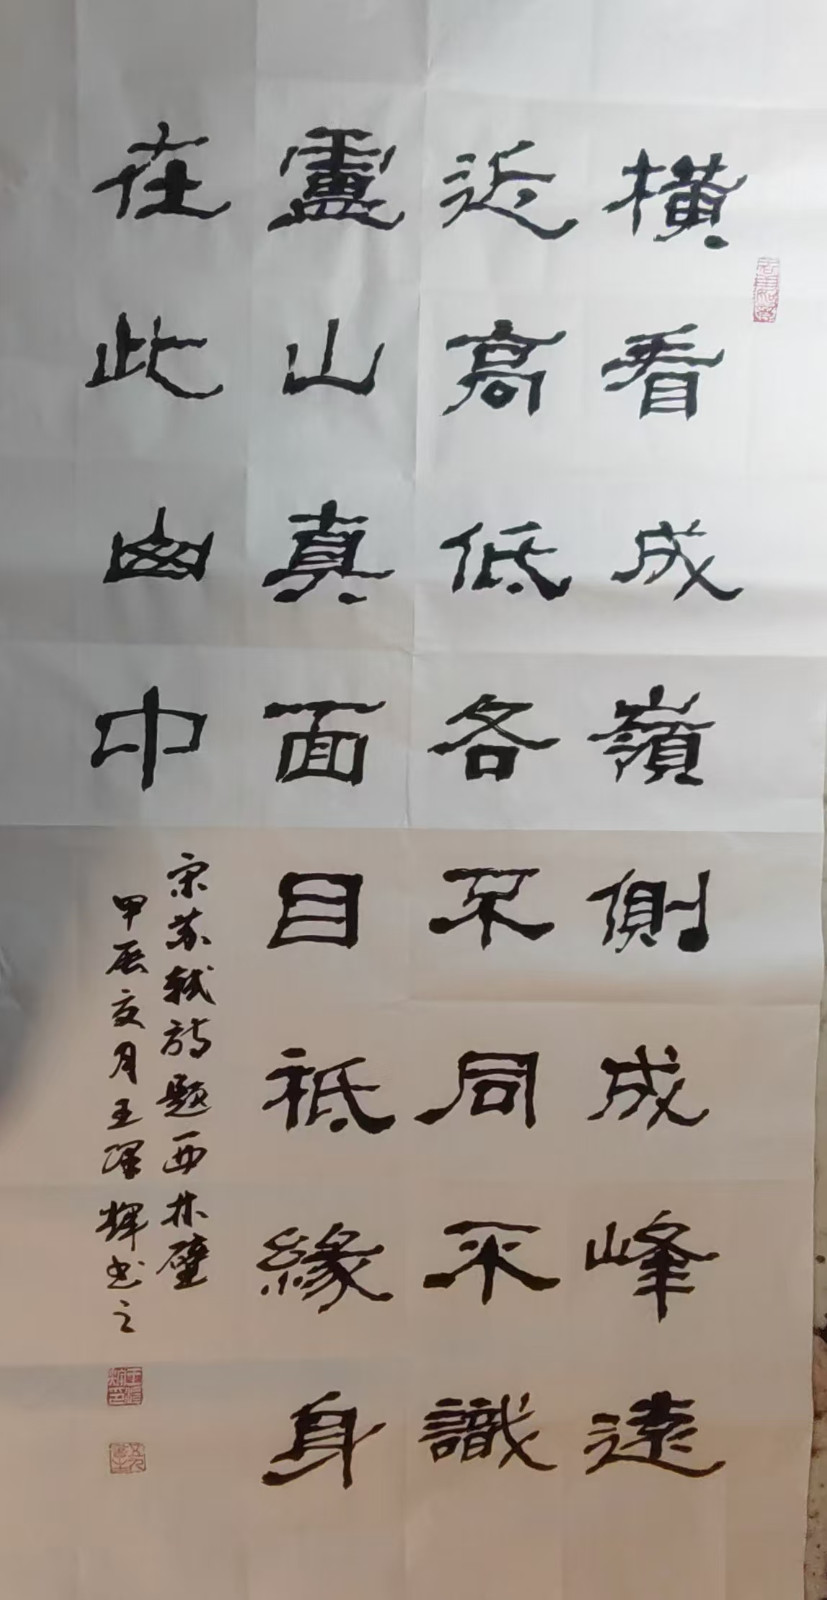 橫看成嶺側成峰遠
近高低各不同不識
盧山真面目祗緣身
在此山中
宋蘇軾詩題西林壁
甲辰夏月王輝書之